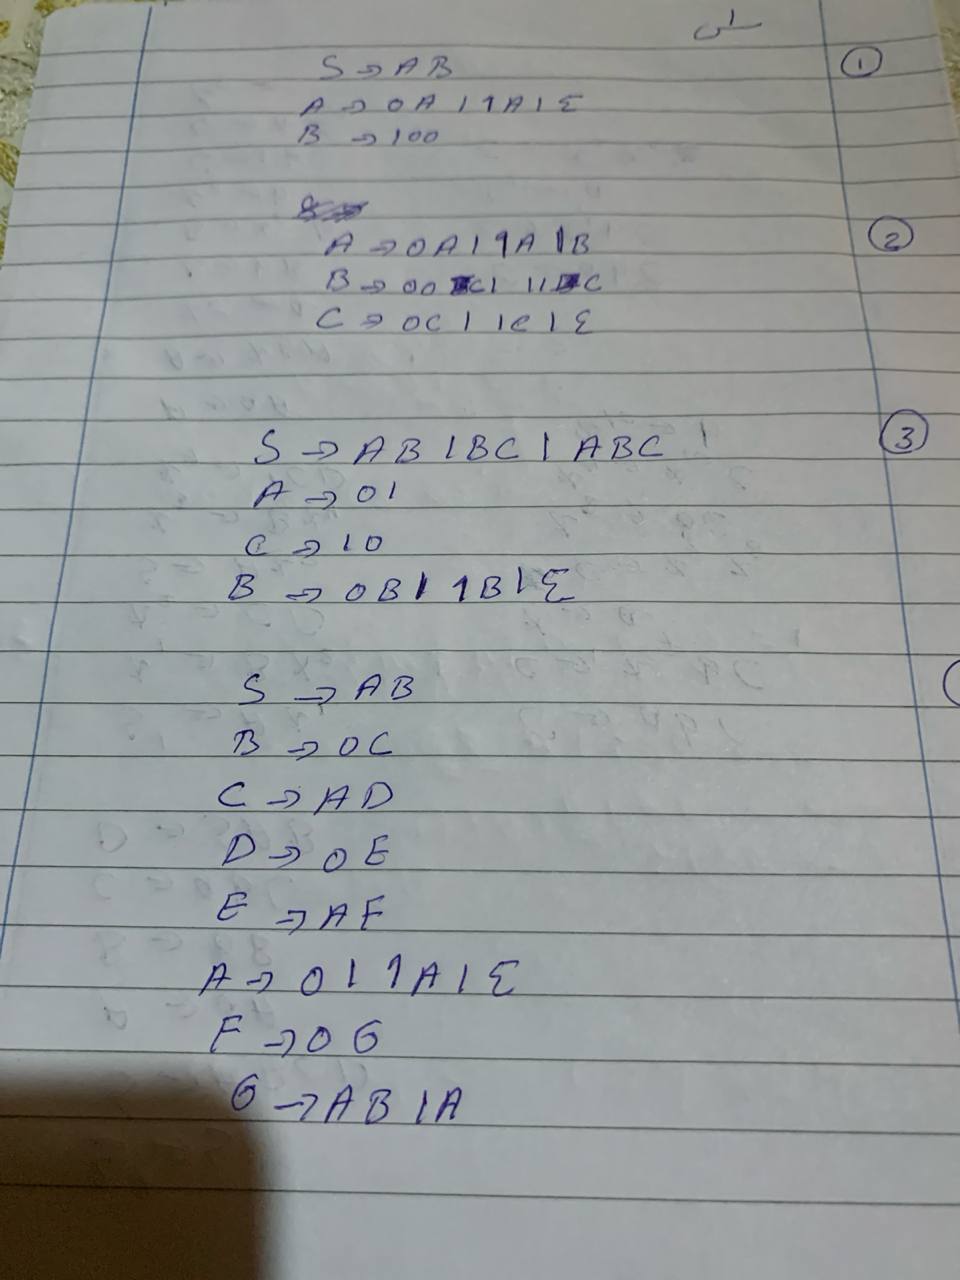 ①
S → AB
A → 0A | 1A | Ɛ
B → 100
②
A → 0A | 1A | B
B → 00C | 11C
C → 0C | 1C | Ɛ
③
S → AB | BC | ABC |
A → 01
C → 10
B → 0B | 1B | Ɛ
S → AB
B → 0C
C → AD
D → 0E
E → AF
A → 0 | 1A | Ɛ
F → 0G
G → AB | A